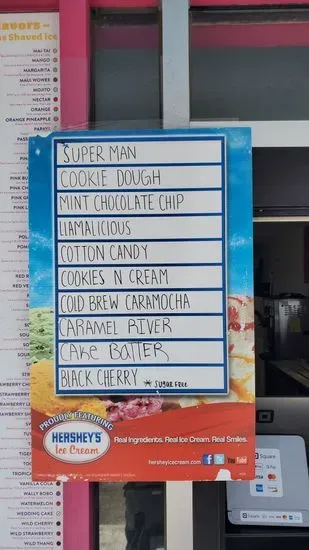 he Shaved Ice
MAI-TAI
MANGO
MARGARITA
MAUI WOWEE
MOJITO
NECTAR
ORANGE
ORANGE PINEAPPLE
SUPER MAN
COOKIE DOUGH
MINT CHOCOLATE CHIP
LIAMALICIOUS
COTTON CANDY
COOKIES N CREAM
COLD BREW CARAMOCHA
CARAMEL RIVER
CAKE BATTER
BLACK CHERRY * SUGAR FREE
PROUDLY FEATURING
HERSHEY'S
Ice Cream
Real Ingredients. Real Ice Cream. Real Smiles.
hersheyicecream.com
VANILLA COLA
WALLY BOBO
WATERMELON
WEDDING CAKE
WILD CHERRY
WILD STRAWBERRY
WILD THANG
Square
Pay
VISA